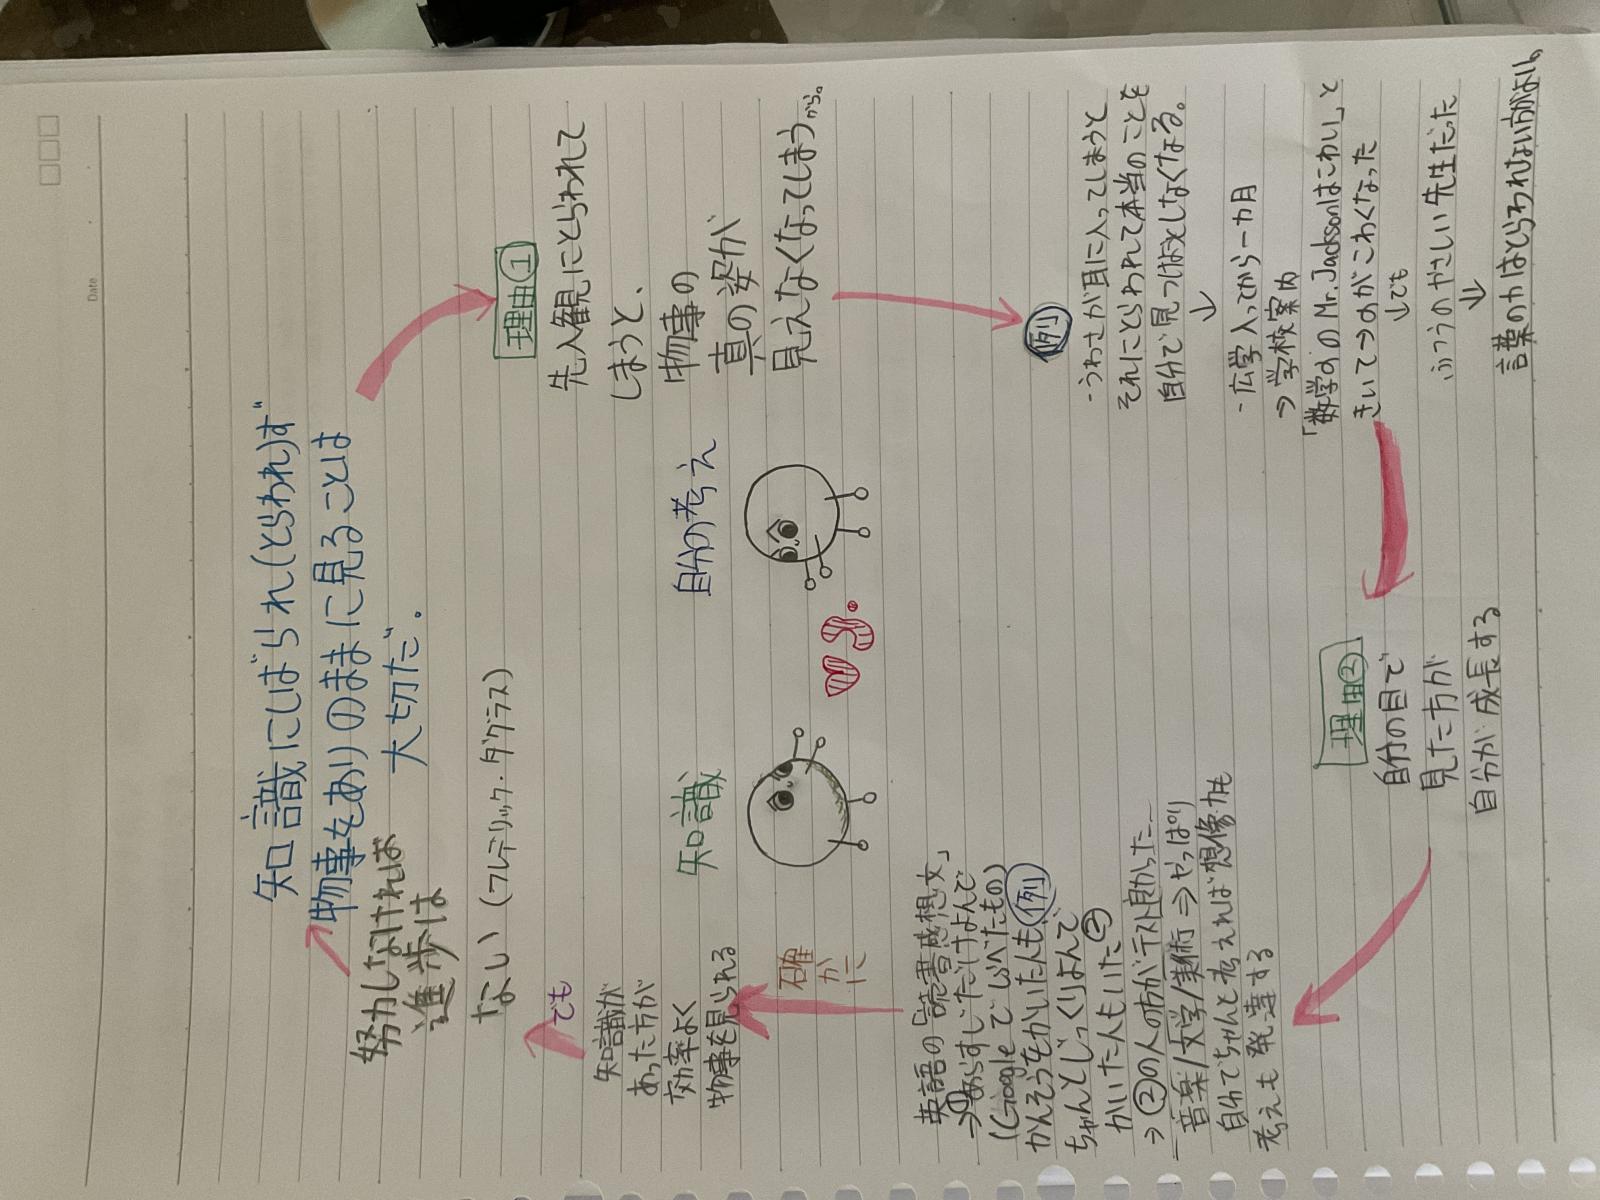 Date
知識にしばられ(とらわれ)ず
物事をありのままに見ることは
大切だ。
理由①
先入観にとらわれて
しまうと、
物事の
真の姿が
見えなくなってしまうから。
例
・うわさが耳に入ってしまうと
それにとらわれて本当のことを
自分で見つけようとしなくなる。
↓
・広学入ってから一カ月
→学校案内
「数学のMr.Jacksonはこわい」と
きいて→のがこわくなった
↓でも
ふつうのやさしい先生だった
↓
言葉の力はとらわれない方がよい。
理由②
自分の目で
見た方が
自分が成長する
英語の「読書感想文」
→①あらすじだけよんで
(Googleでしらべたもの)
かんそうをかいた人も 例
ちゃんとじっくりよんで
かいた人もいた②
→②の人の方がテスト良かった…
音楽/文学/美術⇒やっぱり
自分でちゃんと考えれば想像力も
考えも発達する
確かに
知識が
あった方が
効率よく
物事を見られる
でも
努力しなければ
進歩は
なしい(フレデリック・ダグラス)
知識
VS.
自分の考え